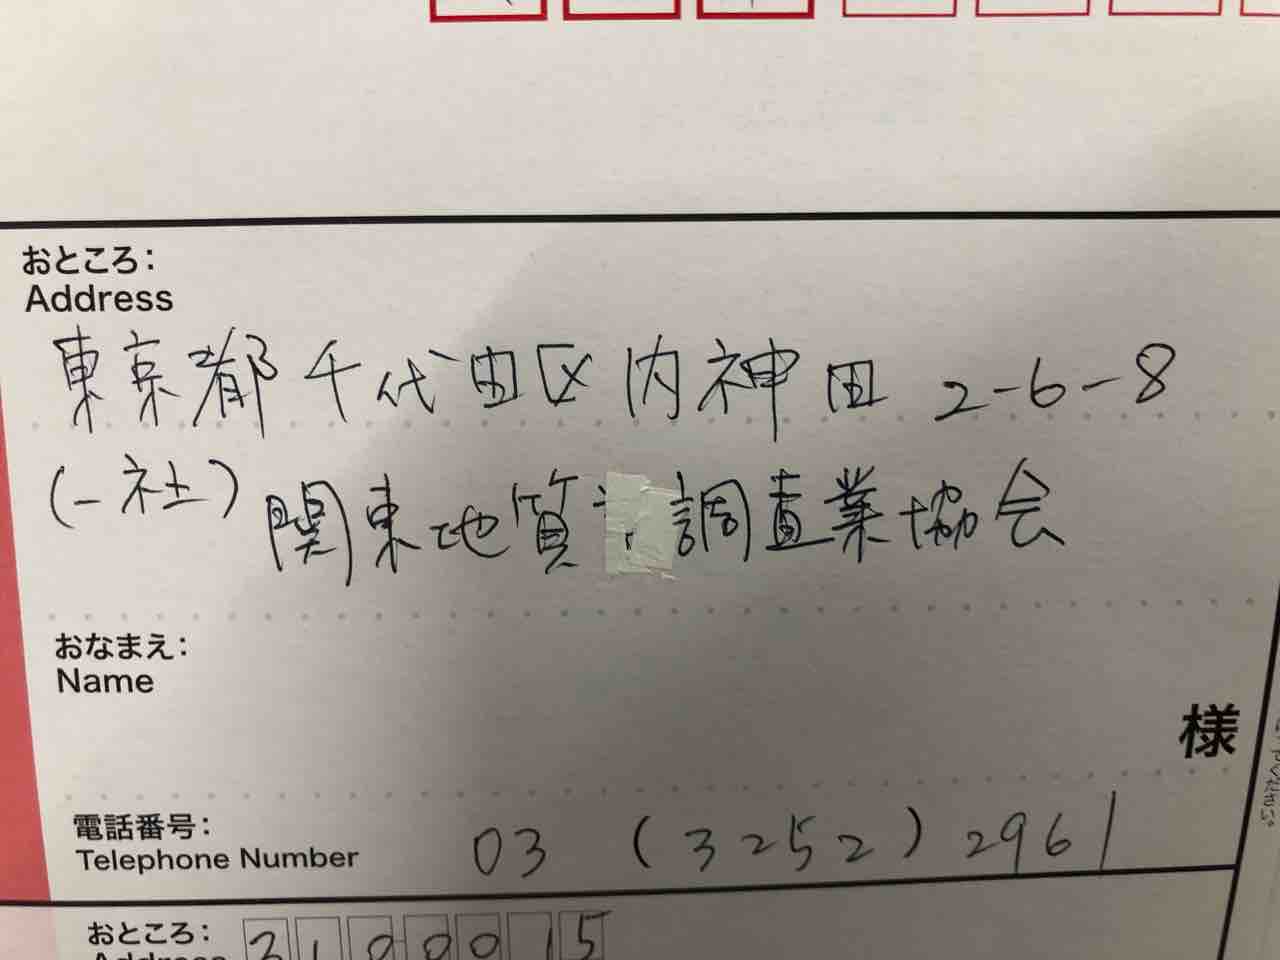 おところ:
Address
東京都千代田区内神田 2-6-8
(一社) 関東地質調査業協会
おなまえ:
Name
様
電話番号:
Telephone Number 03 (3252) 2961
おところ:
Address 3100015
ください。